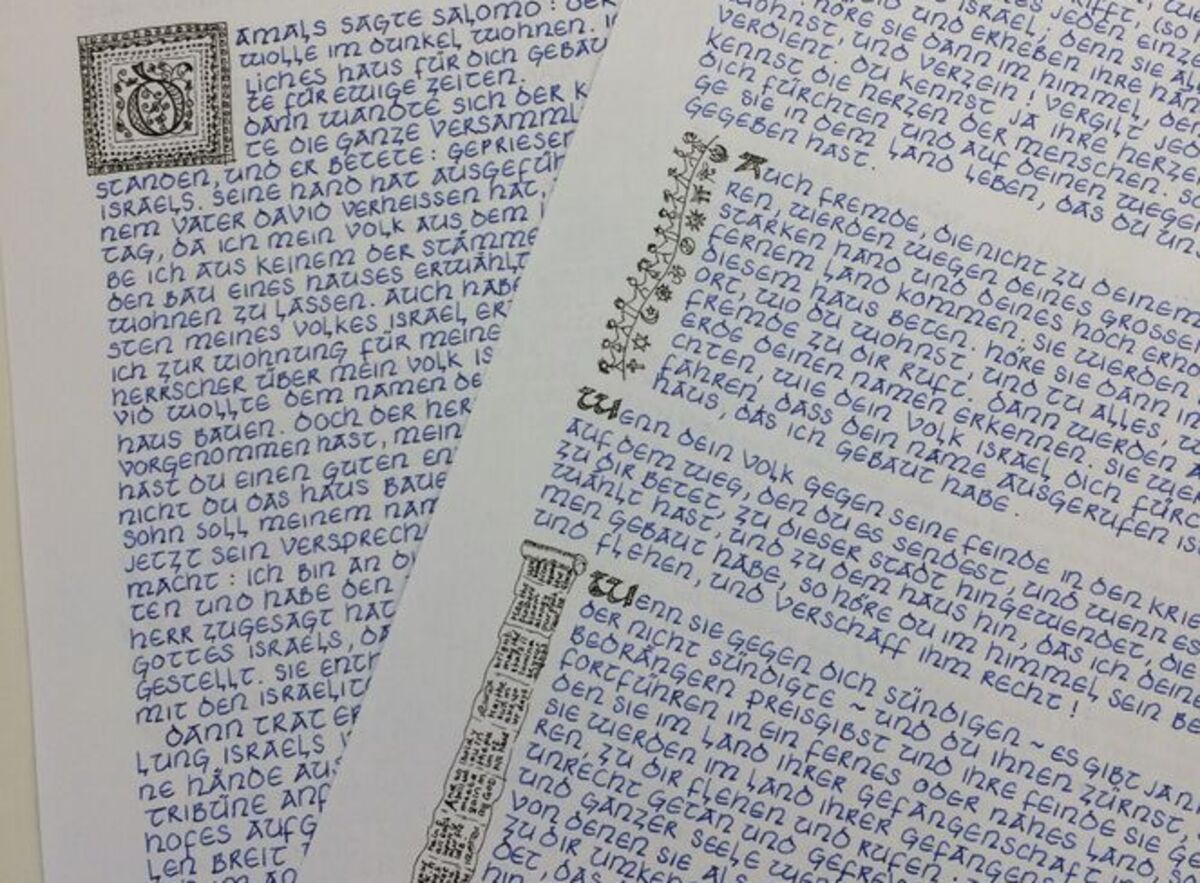 DAMALS SAGTE SALOMO: DER
WOLLE IM DUNKEL WOHNEN.
LICHES HAUS FÜR DICH GEBAU
TE FÜR EWIGE ZEITEN.
DANN WANDTE SICH DER K
TE DIE GANZE VERSAMML
STANDEN, UND ER BETETE: GEPRIESEN
ISRAELS. SEINE HAND HAT AUSGEFÜH
NEM VATER DAVID VERHEISSEN HAT,
TAG, DA ICH MEIN VOLK AUS DEM
BE ICH AUS KEINEM DER STÄMME
DEN BAU EINES HAUSES ERWÄHLT
WOHNEN ZU LASSEN. AUCH HABE
STEN MEINES VOLKES ISRAEL ER
ICH ZUR WOHNUNG FÜR MEINE
HERRSCHER ÜBER MEIN VOLK IS
VID WOLLTE DEM NAMEN DE
HAUS BAUEN. DOCH DER HER
VORGENOMMEN HAST, MEIN
HAST DU EINEN GUTEN EN
NICHT DU DAS HAUS BAUE
SOHN SOLL MEINEM NAM
JETZT SEIN VERSPRECH
MACHT: ICH BIN AN D
TEN UND HABE DEN
HERR ZUGESAGT HAT
GOTTES ISRAELS, DA
GESTELLT. SIE ENTH
MIT DEN ISRAELIT
DANN TRAT ER
LUNG ISRAELS V
NE HÄNDE AUS
TRIBÜNE ANF
HOFES AUFG
LEN BREIT
TRIFFT, (SO
ISRAEL; DENN SIE ALL
UND ERHEBEN IHRE HÄN
WOHNST, UND VERZEIH! VERGILT JED
VERDIENT. DU KENNST JA IHRE HERZEN
KENNST DIE HERZEN DER MENSCHEN. S
DICH FÜRCHTEN UND AUF DEINEN WEGEN
GE SIE IN DEM LAND LEBEN, DAS DU UNS
GEGEBEN HAST.
AUCH FREMDE, DIE NICHT ZU DEINEM
REN, WERDEN WEGEN DEINES GROSSEN
STARKEN HAND UND DEINES HOCH ERHO
FERNEM LAND KOMMEN; SIE WERDEN
DIESEM HAUS BETEN. HÖRE SIE DANN IM
ORT, WO DU WOHNST, UND TU ALLES, W
FREMDE ZU DIR RUFT. DANN WERDEN A
ERDE DEINEN NAMEN ERKENNEN. SIE WER
CHTEN, WIE DEIN VOLK ISRAEL DICH FÜRC
FAHREN, DASS DEIN NAME AUSGERUFEN IS
HAUS, DAS ICH GEBAUT HABE.
WENN DEIN VOLK GEGEN SEINE FEINDE IN DEN KRIE
AUF DEM WEG, DEN DU ES SENDEST, UND WENN ES
ZU DIR BETET, ZU DIESER STADT HINGEWENDET, DIE
WÄHLT HAST, UND ZU DEM HAUS HIN, DAS ICH DEIN
MEN GEBAUT HABE, SO HÖRE DU IM HIMMEL SEIN BE
UND FLEHEN, UND VERSCHAFF IHM RECHT!
WENN SIE GEGEN DICH SÜNDIGEN ~ ES GIBT JA N
DER NICHT SÜNDIGTE ~ UND DU IHNEN ZÜRNST,
BEDRÄNGERN PREISGIBST UND IHRE FEINDE SIE GE
FORTFÜHREN IN EIN FERNES ODER NAHES LAND, SO
DEN SIE IM LAND IHRER GEFANGENSCHAFT
SIE WERDEN IM LAND IHRER GEFANGENS
REN, ZU DIR FLEHEN UND RUFEN:
UNRECHT GETAN UND GEFREV
UND GANZER SEELE
VON DENEN SIE ALS
ZU DIR UMKEH
DET, DAS